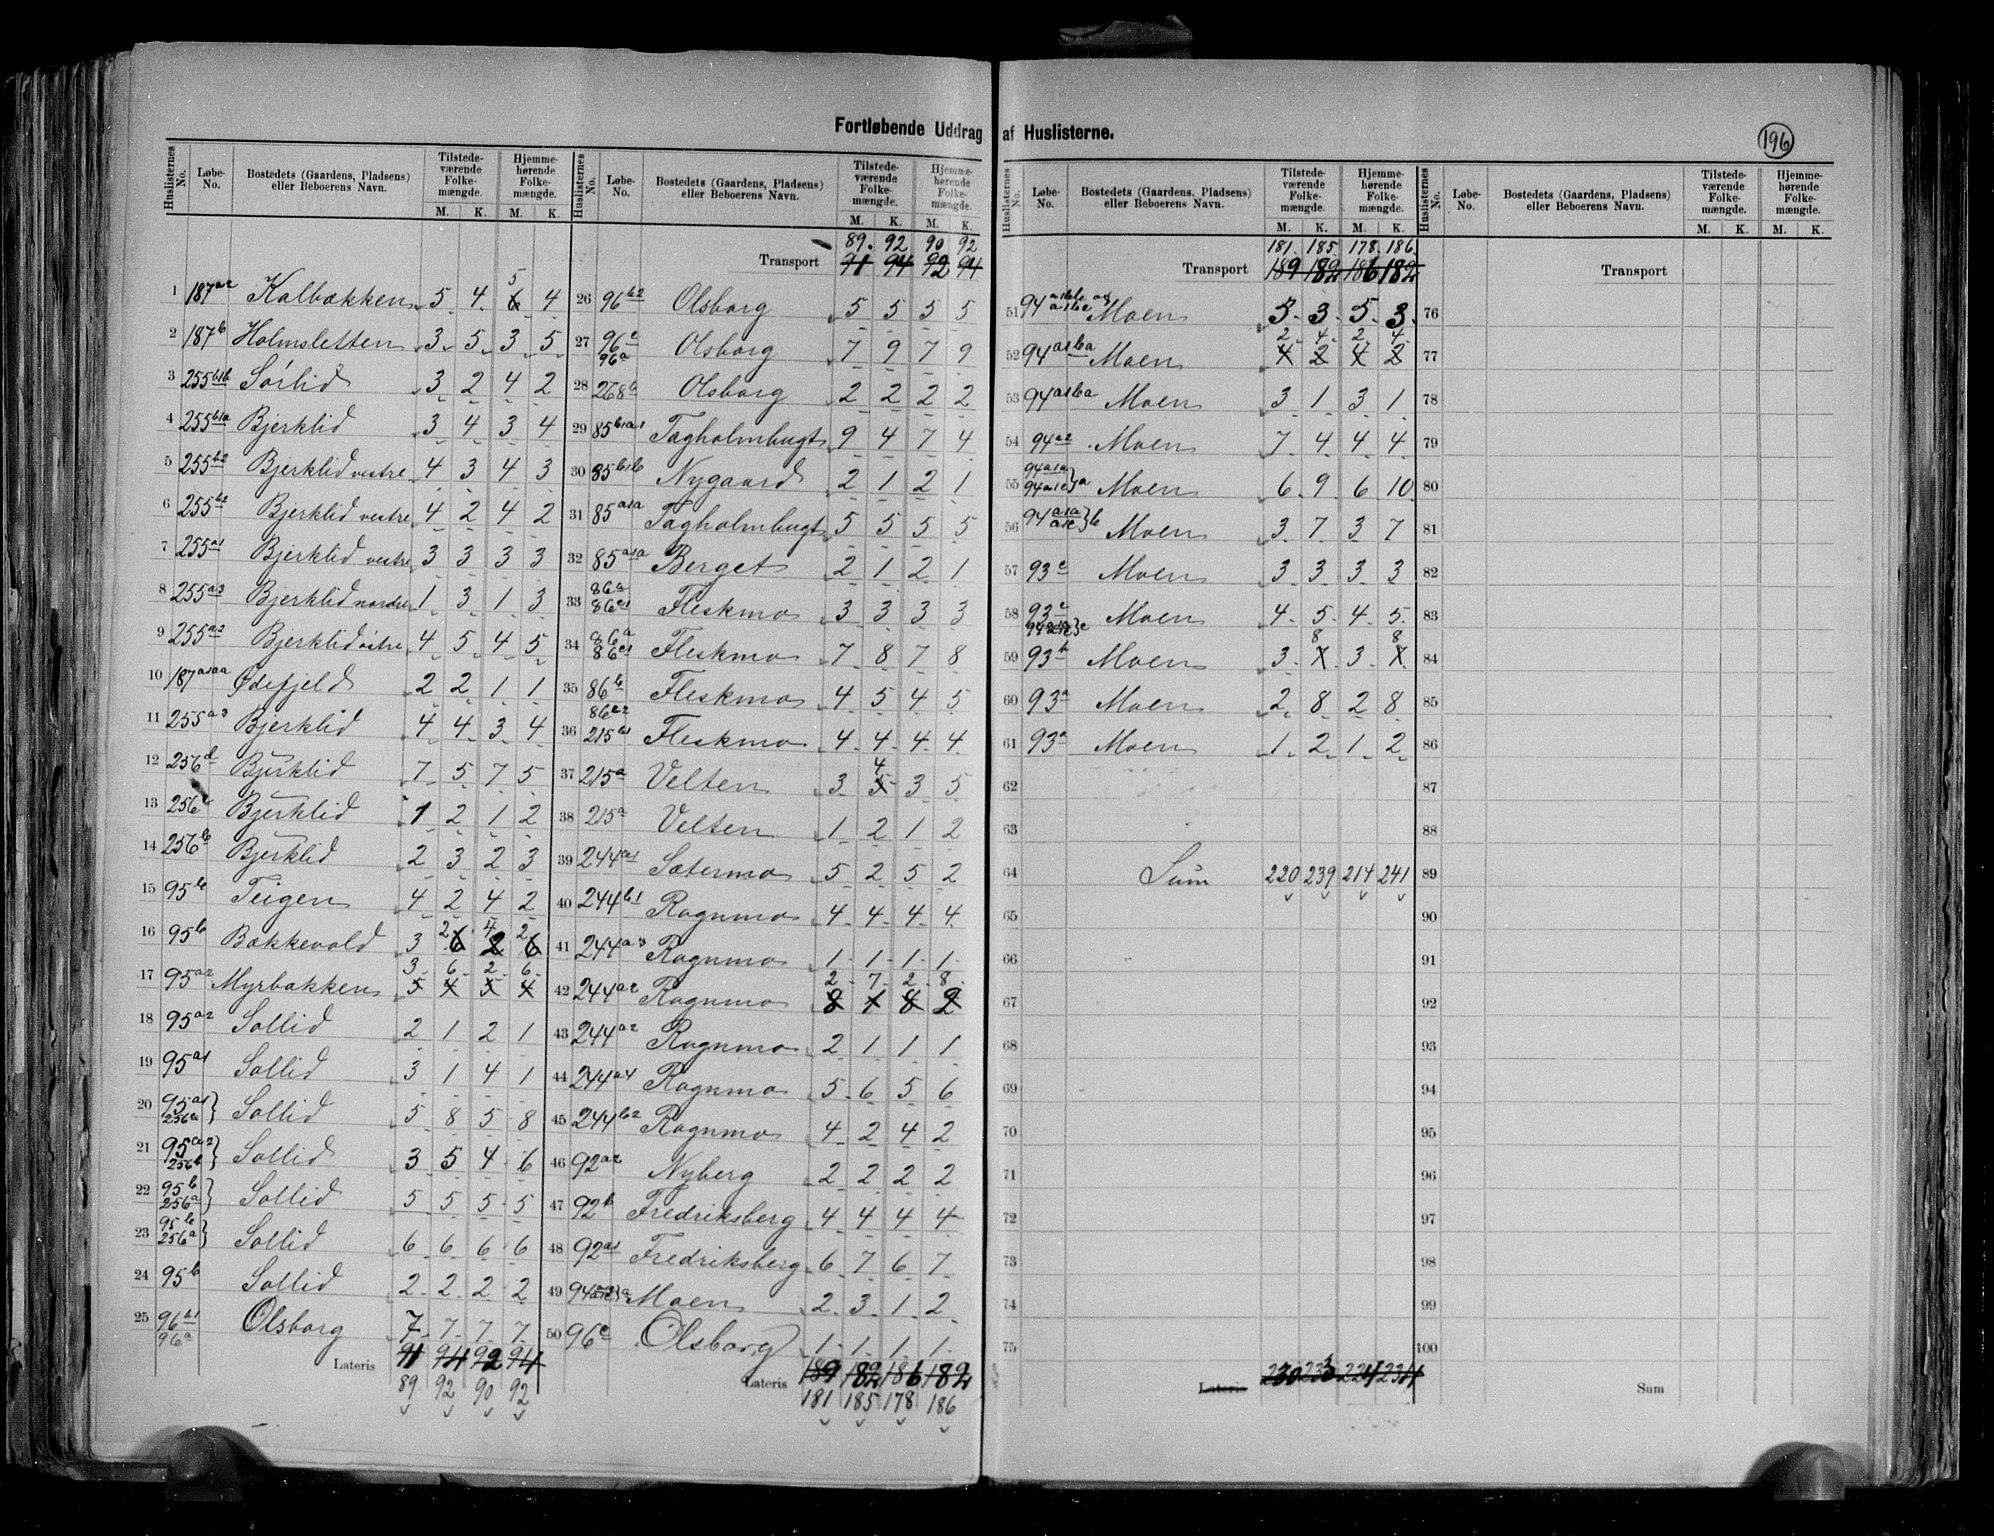 Fortløbende Uddrag af Huslisterne.
196
Huslisternes No. | Løbe-No. | Bostedets (Gaardens, Pladsens) eller Beboerens Navn. | Tilstedeværende Folkemængde. M. K. | Hjemmehørende Folkemængde. M. K.
1 187 a2 Kalbækken 5 4 5 6 4
2 187 b Holmsletten 3 5 3 5
3 255 b1b Sörlid 3 2 4 2
4 255 b1a Bjerklid 3 4 3 4
5 255 b2 Bjerklid vestre 4 3 4 3
6 255 b2 Bjerklid vestre 4 2 4 2
7 255 a1 Bjerklid vestre 3 3 3 3
8 255 a3 Bjerklid nordre 1 3 1 3
9 255 a2 Bjerklid östre 4 5 4 5
10 187 a1aa Ødefjeld 2 2 1 1
11 255 a3 Bjerklid 4 4 3 4
12 256 d Bjerklid 7 5 7 5
13 256 c Bjerklid 1 2 1 2
14 256 b Bjerklid 2 3 2 3
15 95 b Teigen 4 2 4 2
2 4 2
16 95 b Bækkevold 3 6 2 6
3 6 2 6
17 95 a2 Myrbakken 5 4 5 4
18 95 a2 Sollid 2 1 2 1
19 95 a1 Sollid 3 1 4 1
20 95 a1 256 a } Sollid 5 8 5 8
21 95 a2 256 b } Sollid 3 5 4 6
22 95 b 256 a } Sollid 5 5 5 5
23 95 b 256 a } Sollid 6 6 6 6
24 95 b Sollid 2 2 2 2
25 96 b1 96 a Olsborg 7 7 7 7
Lateris 91 94 92 94
89 92 90 92
Huslisternes No. | Løbe-No. | Bostedets (Gaardens, Pladsens) eller Beboerens Navn. | Tilstedeværende Folkemængde. M. K. | Hjemmehørende Folkemængde. M. K.
89 92 90 92
Transport 91 94 92 94
26 96 b2 Olsborg 5 5 5 5
27 96 c 96 a Olsborg 7 9 7 9
28 268 b Olsborg 2 2 2 2
29 85 b1a1 Tagholmbugt 9 4 7 4
30 85 b1b Nygaard 2 1 2 1
31 85 a1a Tagholmbugt 5 5 5 5
32 85 a1a Berget 2 1 2 1
33 86 a 86 c1 Fleskmo 3 3 3 3
34 86 a 86 c1 Fleskmo 7 8 7 8
35 86 b Fleskmo 4 5 4 5
36 86 c2 215 b1 Fleskmo 4 4 4 4
4
37 215 a Velten 3 5 3 5
38 215 a Velten 1 2 1 2
39 244 a1 Sætermo 5 2 5 2
40 244 b1 Rognmo 4 4 4 4
41 244 a3 Rognmo 1 1 1 1
2 7 2 8
42 244 a2 Rognmo 8 1 8 2
43 244 a2 Rognmo 2 1 1 1
44 244 a4 Rognmo 5 6 5 6
45 244 b2 Rognmo 4 2 4 2
46 92 a2 Nyberg 2 2 2 2
47 92 b Fredriksberg 4 4 4 4
48 92 a1 Fredriksberg 6 7 6 7
49 94 Moen 2 3 1 2
50 96 c Olsborg 1 1 1 1
Lateris 189 182 186 182
181 185 178 186
Huslisternes No. | Løbe-No. | Bostedets (Gaardens, Pladsens) eller Beboerens Navn. | Tilstedeværende Folkemængde. M. K. | Hjemmehørende Folkemængde. M. K.
181 185 178 186
Transport 189 182 186 182
51 94 Moen 5 3 5 3
2 4 2 4
52 94 a1ba Moen 4 2 4 2
53 94 a1ba Moen 3 1 3 1
54 94 a2 Moen 7 4 4 4
55 94 a1a 94 a1c } a Moen 6 9 6 10
56 94 a1a a1c } b Moen 3 7 3 7
57 93 c Moen 3 3 3 3
58 93 c Moen 4 5 4 5
8 8
59 93 b Moen 3 3
60 93 a Moen 2 8 2 8
61 93 a Moen 1 2 1 2
62
63
64 Sum 220 239 214 241
65
66
67
68
69
70
71
72
73
74
75
Lateris 230 233 224 234
Huslisternes No. | Løbe-No. | Bostedets (Gaardens, Pladsens) eller Beboerens Navn. | Tilstedeværende Folkemængde. M. K. | Hjemmehørende Folkemængde. M. K.
Transport
76
77
78
79
80
81
82
83
84
85
86
87
88
89
90
91
92
93
94
95
96
97
98
99
100
Sum